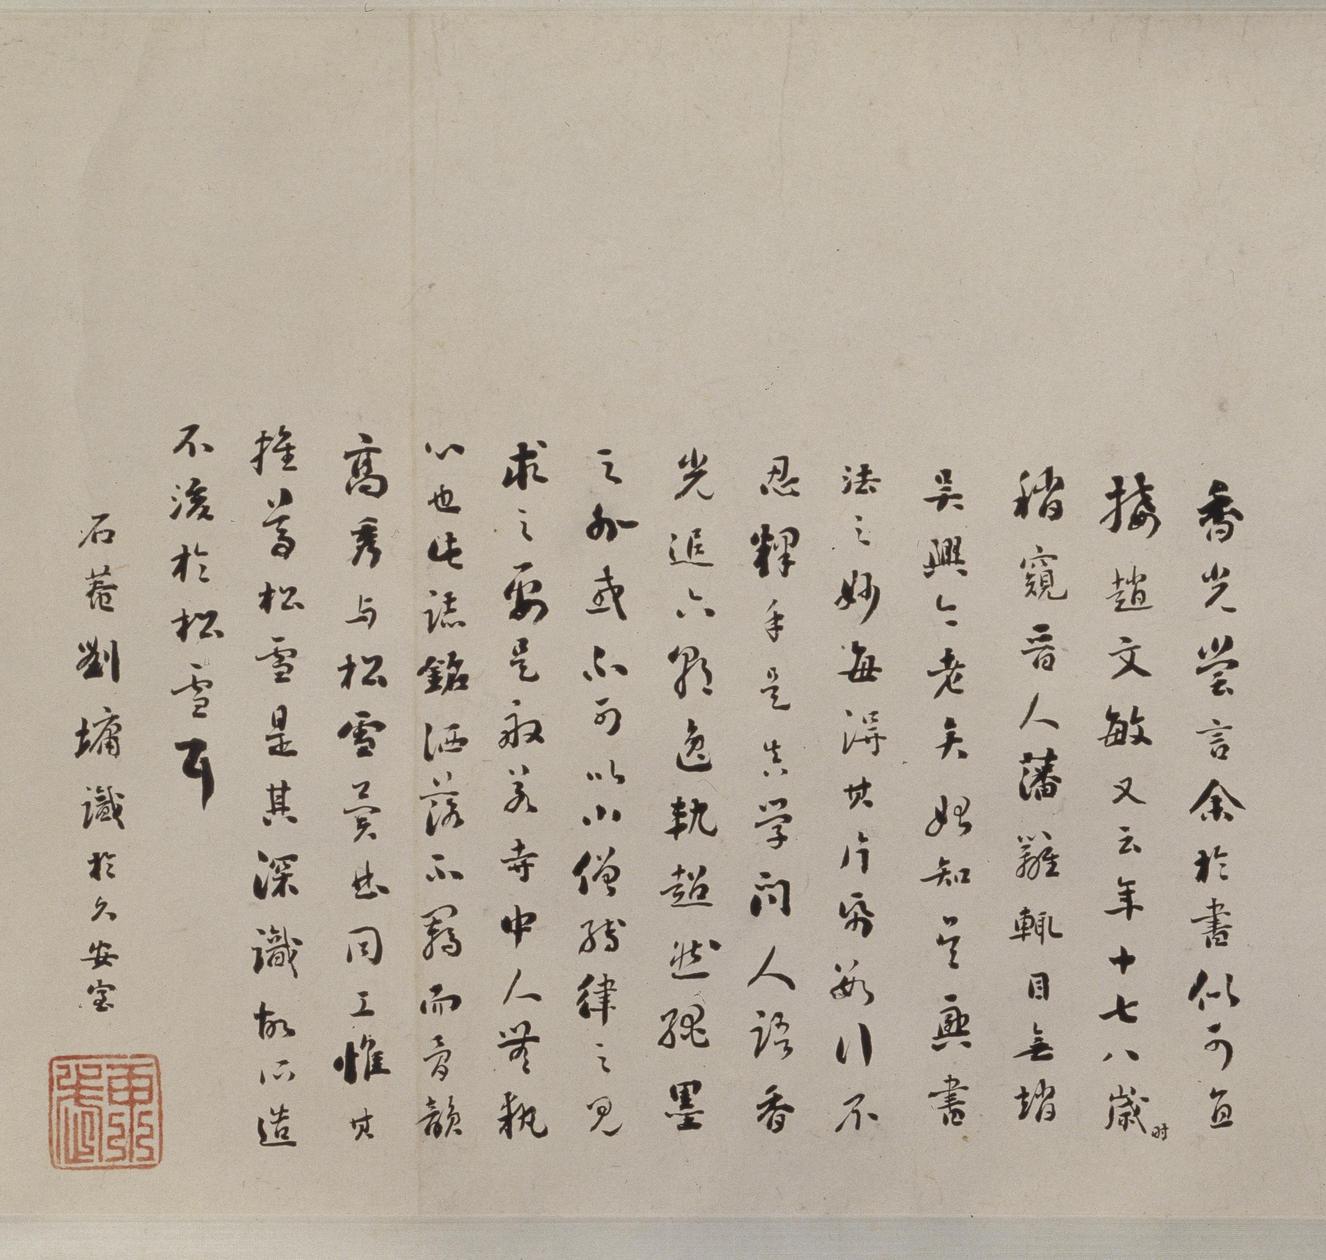 香光尝言余於書似可直
接趙文敏又云年十七八歲时
稍窺晋人藩籬輒目無趙
吴興今老矣始知吴興書
法之妙每得其片紙數行不
忍釋手是真学问人語香
光追六朝逸軌超然繩墨
之外或亦可以小僧縛律之見
求之要是叔若寺中人無執
心也此誌銘洒落不羈而音韻
高秀与松雪異曲同工惟其
推尊松雪是其深識故所造
不後於松雪耳
石菴劉墉識於久安室